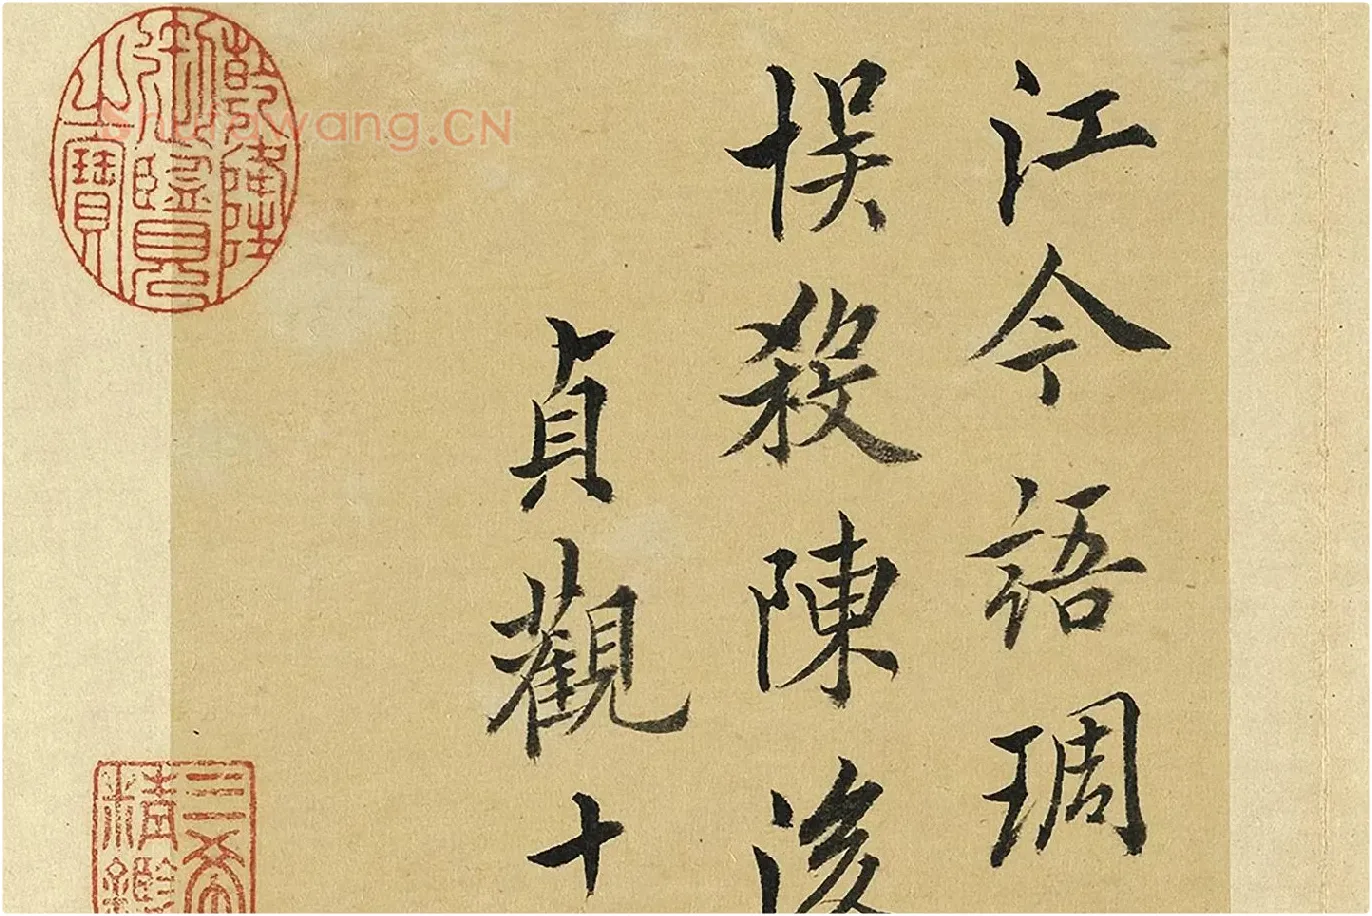 江今語琱
悮殺陳後
貞觀十
乾隆
御覽
之寶
三希
精鑑
shufawang.CN